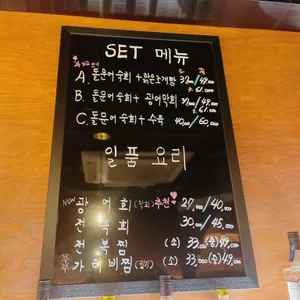 SET 메뉴
A. 돌문어숙회 + 맑은조개탕
B. 돌문어숙회 + 광어막회
C. 돌문어숙회 + 수육 40,000/60,000
일품 요리
NEW 광어회 (막회) 추천 27,000/40,000
전복회 30,000/45,000
전복찜 (소) 33,000 (중) 49,000
가리비찜 (소) 33,000 (중) 49,000